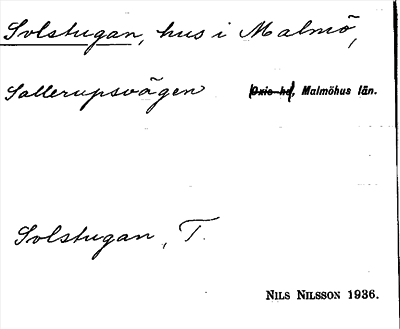 Solstugan, hus i Malmö,
Sallerupsvägen Oxie hd, Malmöhus län.
Solstugan, T.
NILS NILSSON 1936.